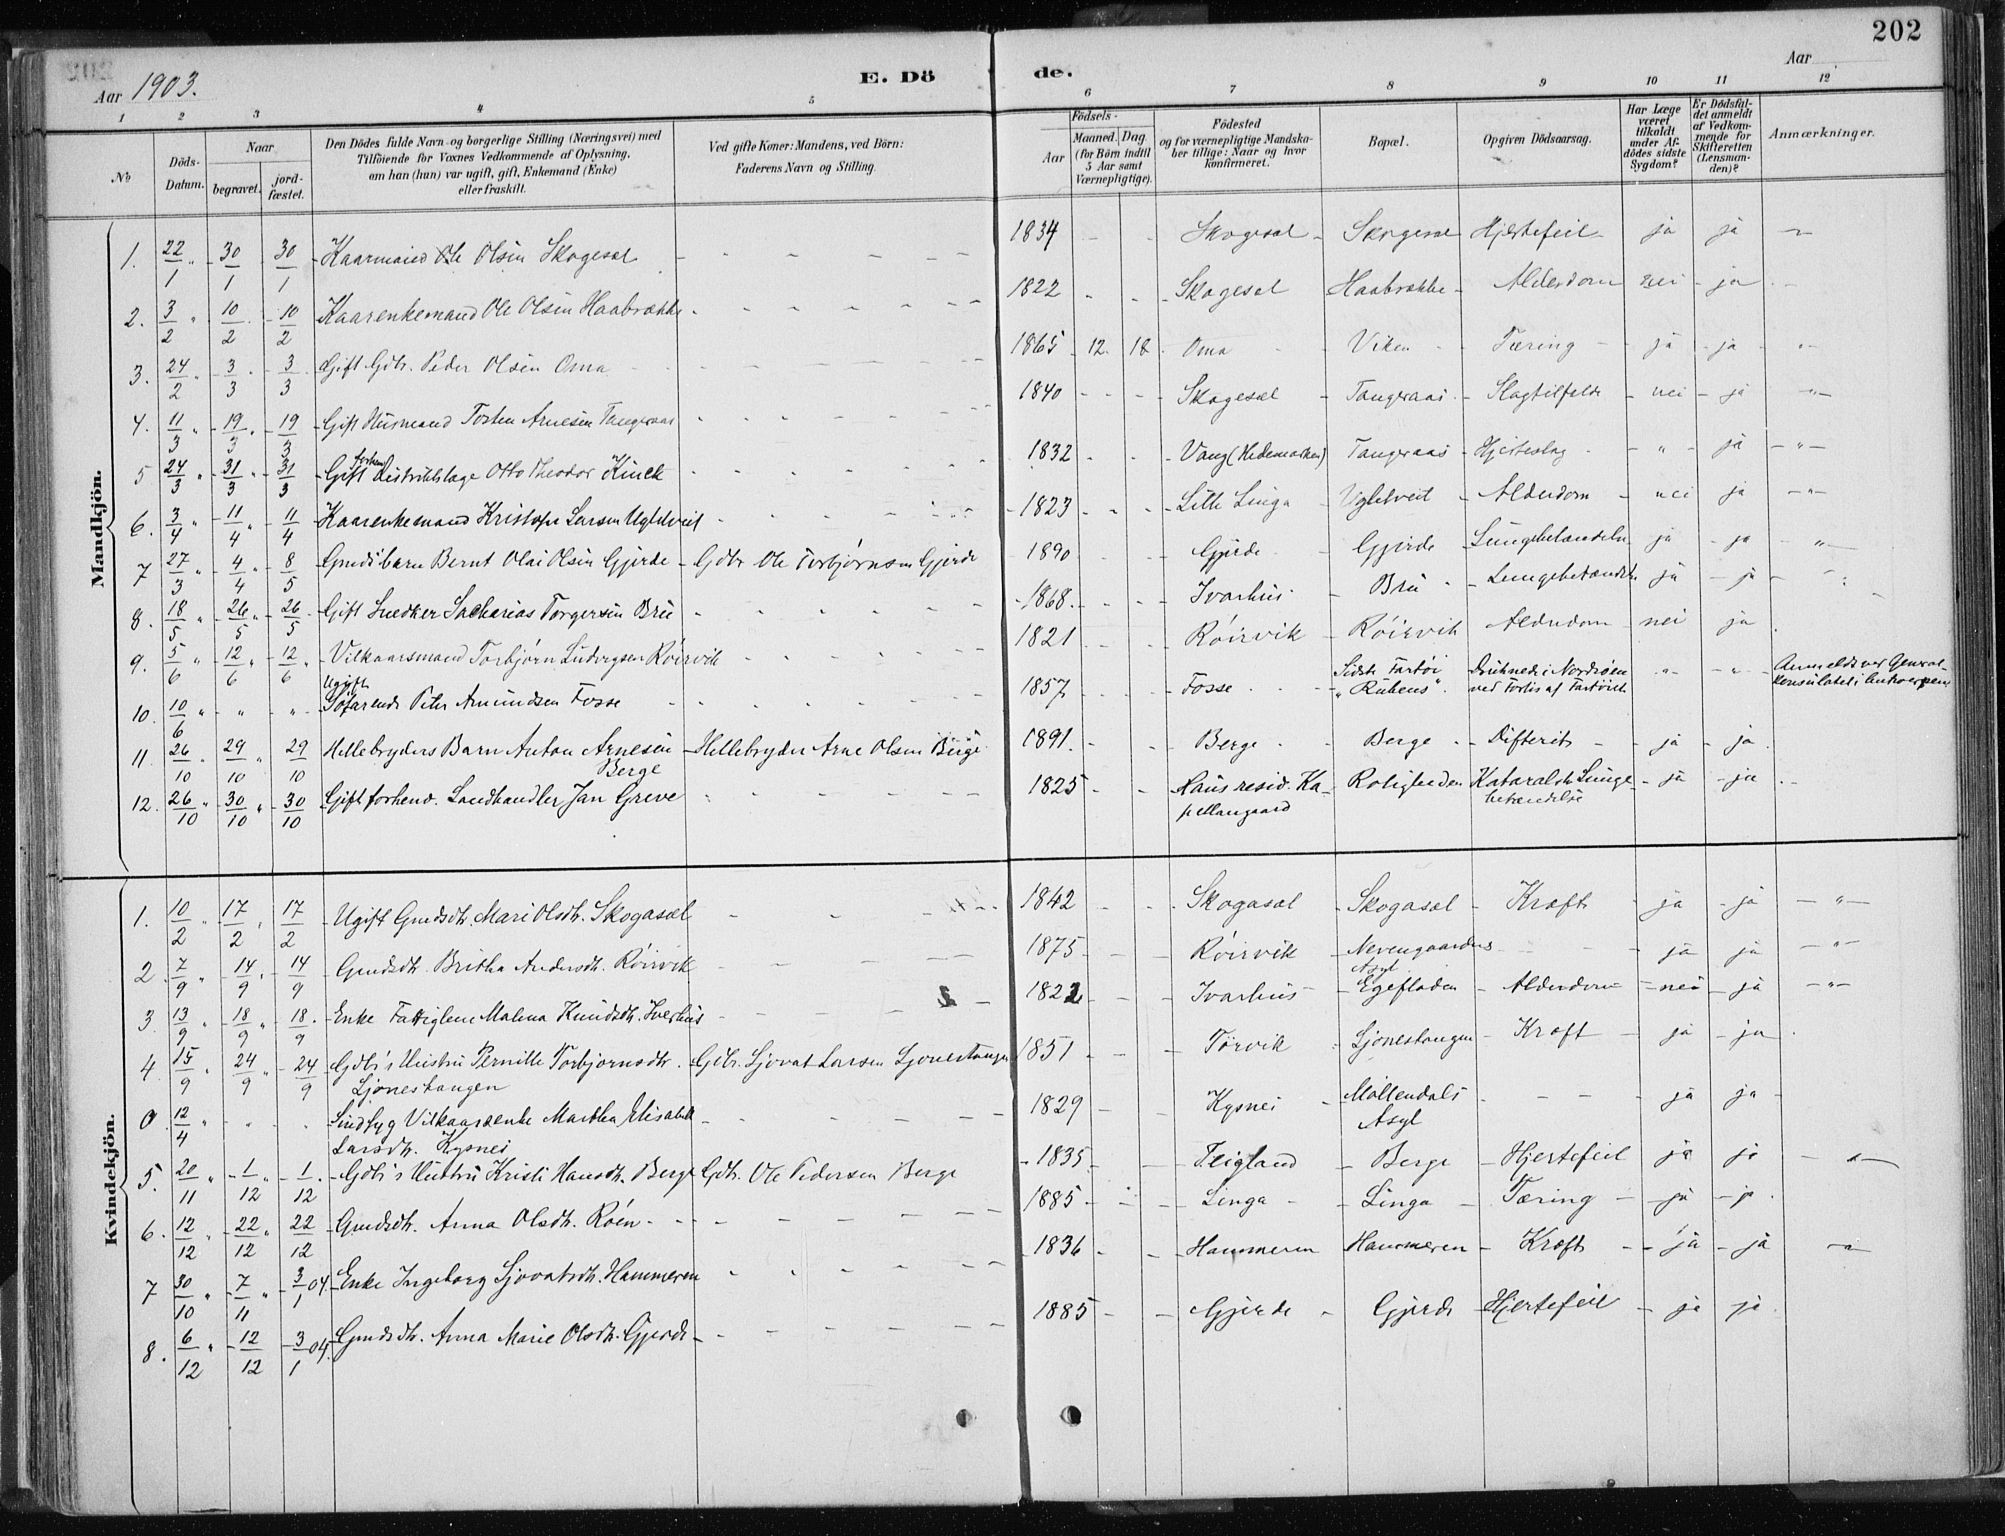 202
Aar 1903.
E. Dö
de.
Aar
1 2 3 4 5 6 7 8 9 10 11 12
No
Döds-Datum.
Naar
begravet.
jordfæstet.
Den Dödes fulde Navn og borgerlige Stilling (Næringsvei) med
Tilföiende for Voxnes Vedkommende af Oplysning,
om han (hun) var ugift, gift, Enkemand (Enke)
eller fraskilt.
Ved gifte Koner: Mandens, ved Börn:
Faderens Navn og Stilling.
Födsels-
Aar
Maaned. Dag
(for Börn indtil
5 Aar samt
Værnepligtige).
Födested
og for værnepligtige Mandska-
ber tillige: Naar og hvor
konfirmeret.
Bopæl.
Opgiven Dödsaarsag.
Har Læge
været
tilkaldt
under Af-
dödes sidste
Sygdom?
Er Dödsfal-
det anmeldt
af Vedkom-
mende for
Skifteretten
(Lensman-
den)?
Anmærkninger.
Mandkjön.
1. 22/1 " 30/1 30/1 Kaarmand Ole Olsen Skogesæl - 1834 - - Skogesæl - Skogesæl Hjertefeil ja ja "
2. 3/2 " 10/2 10/2 Kaarenkemand Ole Olsen Haabrække - 1822 - - Skogesæl Haabrække - Alderdom nei - ja -
3. 24/2 " 3/3 3/3 Gift Gdbr. Peder Olsen Oma - 1865 12. 18. Oma - Viken - Tæring - ja - ja "
4. 11/3 " 19/3 19/3 Gift Husmand Tosten Arnesen Tangeraas - 1840 - - Skogesæl - Tangeraas - Slagtilfælde - nei - ja "
5 24/3 " 31/3 31/3 Gift forhenv. Distriktslæge Otto Theodor Kinck - 1832 - - Vang (Hedemarken) Tangeraas - Hjerteslag - " - ja - " -
6. 3/4 " 11/4 11/4 Kaarenkemand Kristofer Larsen Ugletveit - 1823 - - Litle Linga - Ugletveit - Alderdom - nei ja - " -
7 27/3 " 4/4 8/5 Gmds barn Bernt Olai Olsen Gjerde - Gdbr Ole Torbjørnsen Gjerde 1890 - - Gjerde - Gjerde - Lungebetændelse ja - ja - " -
8. 18/5 " 26/5 26/5 Gift Snedker Sacharias Torgersen Bru - 1868. - - Ivarhus - Bru - Lungebetændelse ja - ja -
9. 5/6 " 12/6 12/6 Vilkaarsmand Torbjørn Ludvigsen Röirvik - 1821 - - Röirvik - Röirvik Alderdom nei ja
10. 10/6 " " " Ugift Søfarende Peter Amundsen Fosse - 1857 - - Fosse - Sidste Fartöi "Rubens". Druknede i Nordsøen ved Forlis af Fartöiet " - " Anmeldt ved Generalkonsulatet i Antwerpen
11 26/10 " 29/10 29/10 Hellebryders Barn Anton Arnesen Berge - Hellebryder Arne Olsen Berge 1891. - - Berge - Berge - Difterit - ja - ja.
12. 26/10 " 30/10 30/10 Gift forhenv. Landhandler Jan Greve - 1825 - - Haus resid. Kapellangaard Roligheden Kataralsk Lungebetændelse - ja - ja -
Kvindekjön.
1. 10/2 " 17/2 17/2 Ugift Gmdsdtr. Mari Olsdtr. Skogasæl - 1842 - - Skogasæl - Skogasæl - Kræft - ja - ja - " -
2 7/9 " 14/9 14/9 Gmdsdtr. Britha Andersdtr. Röirvik - 1875 - - Röirvik - Nevengaardens Asyl - ja ja - " -
3 13/9 " 18/9 18/9 Enke Fattiglem Malena Knudsdtr. Ivarhus - 1822 - - Ivarhus - Egefladen - Alderdom - nei - ja - " -
4 15/9 " 24/9 24/9 Gdbr's Hustru Pernille Torbjørnsdtr. Ljonestangen - Gdbr. Sjovat Larsen Ljonestangen 1851 - - Torvik - Ljonestangen - Kræft - ja - ja.
0 12/4 " " " Sindsyg Vilkaarsenke Martha Elisabet Larsdtr. Kysnei - 1829 - - Kysnei - Møllendals Asyl - - - ja ja -
5. 20/11 " 1/12 1/12 Gdbr's Hustru Kristi Hansdtr. Berge Gdbr. Ole Pedersen Berge - 1835 - - Teigland - Berge - Hjertefeil ja ja - " -
6. 12/12 " 22/12 22/12 Gmdsdtr. Anna Olsdtr. Roen - 1885 - - Linga - Linga - Tæring - ja - ja.
7 30/10 " 7/11 3/1 04. Enke Ingeborg Sjovatsdtr. Hammeren - 1836 - - Hammeren Hammeren - Kræft - ja - ja "
8. 6/12 " 12/12 3/1 04. Gmdsdtr. Anna Marie Olsdtr. Gjerde - 1885 - - Gjerde - Gjerde - Hjertefeil - ja ja